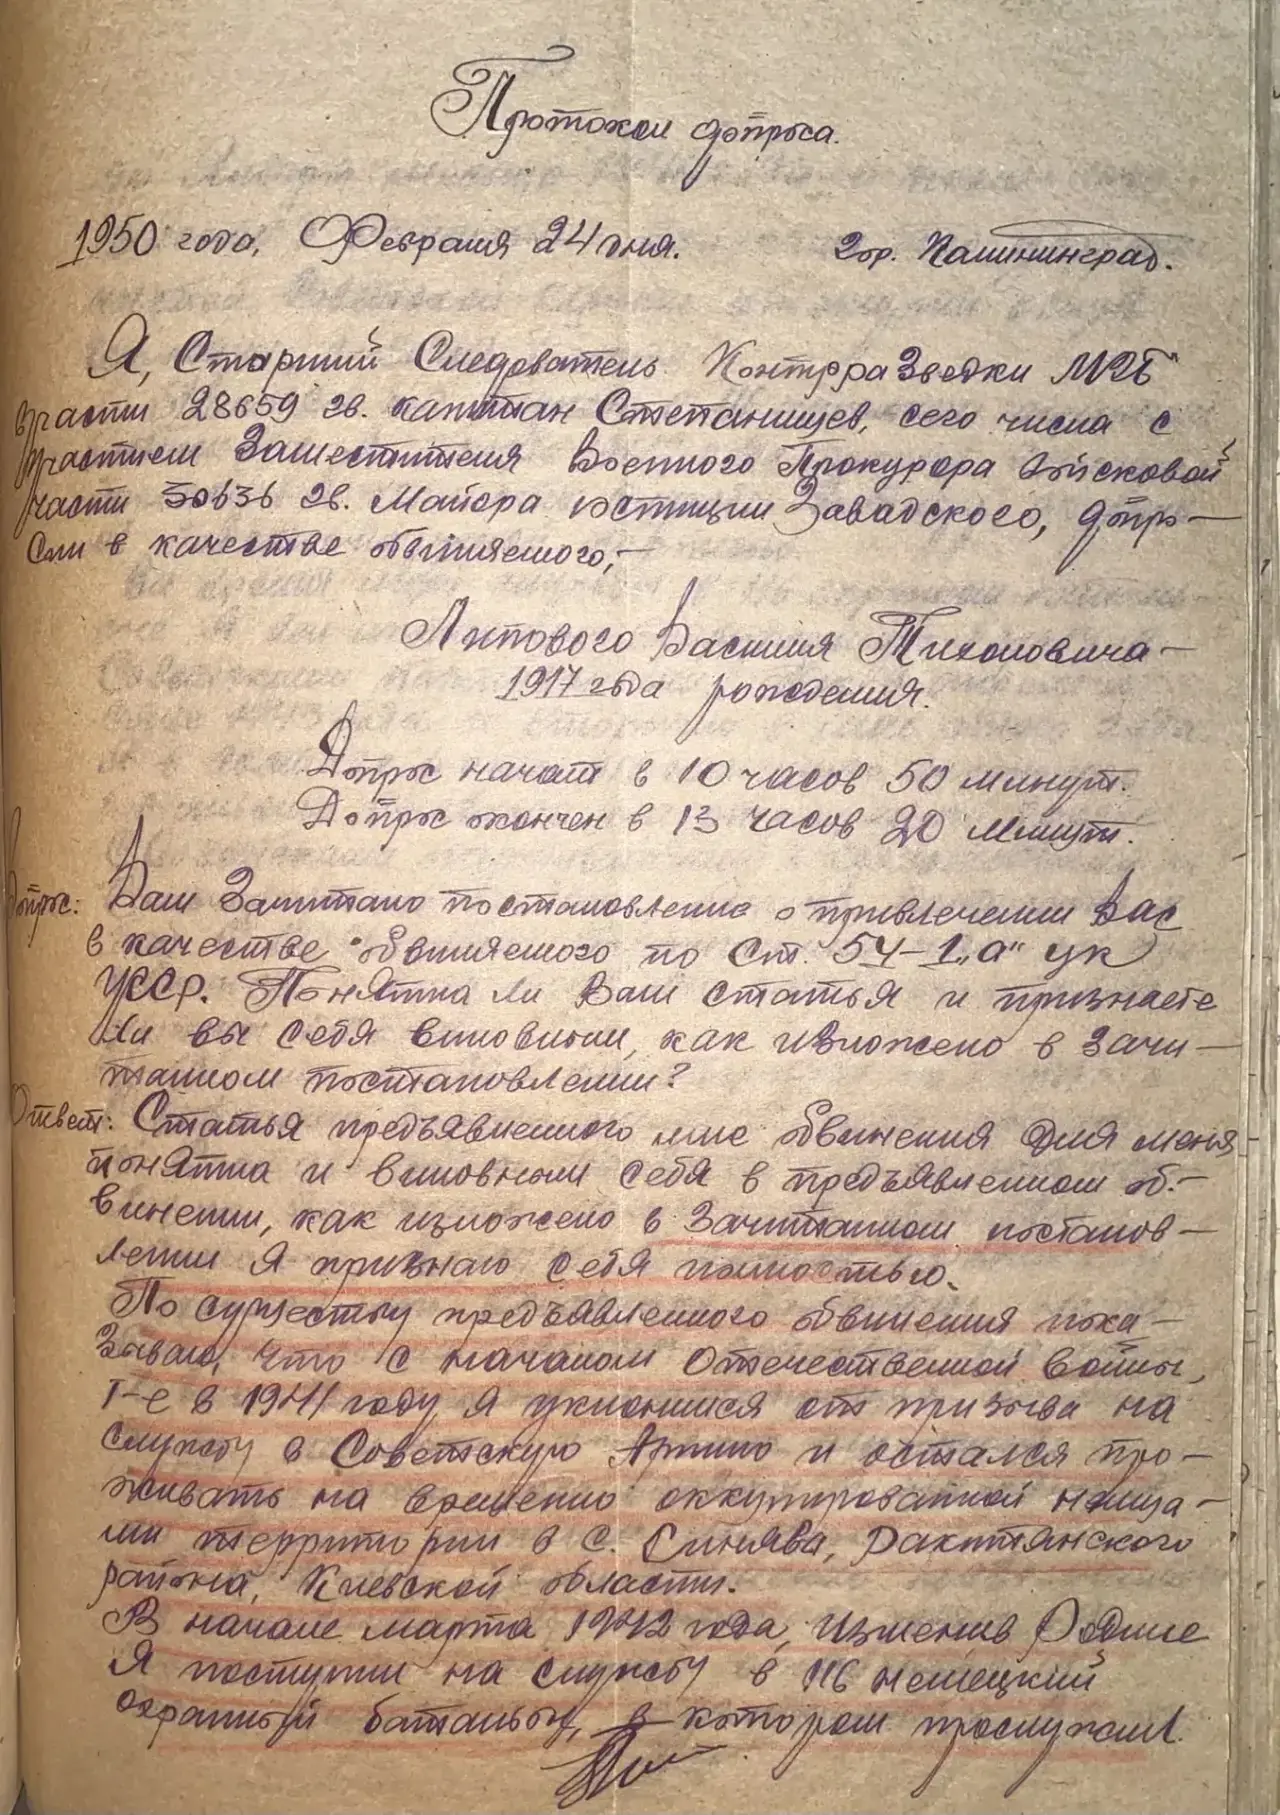 Протокол допроса.
1950 года, Февраля 24 дня. гор. Калининград.
Я, Старший Следователь Контрразведки МГБ
в/части 28659 гв. капитан Степанищев, сего числа с
участием Заместителя Военного Прокурора Войсковой
части 30636 гв. Майора юстиции Завадского, допро-
сил в качестве обвиняемого,-
Липового Василия Тихоновича -
1917 года рождения.
Допрос начат в 10 часов 50 минут.
Допрос окончен в 13 часов 20 минут.
Вопрос: Вам Зачитано постановление о привлечении Вас
в качестве обвиняемого по Ст. 54-1 „а" УК
УССР. Понятна ли Вам статья и признаете
ли вы себя виновным, как изложено в зачи-
танном постановлении?
Ответ: Статья предъявленного мне обвинения для меня
понятна и виновным себя в предъявленном об-
винении, как изложено в зачитанном постанов-
лении я признаю себя полностью.
По существу предъявленного обвинения пока-
зываю, что с началом Отечественной войны,
т-е в 1941 году, я уклонился от призыва на
службу в Советскую Армию и остался про-
живать на временно оккупированной немца-
ми территории в с. Синява, Ракитянского
района, Киевской области.
В начале марта 1942 года, изменив Родине
я поступил на службу в 116 немецкий
охранный батальон, в котором прослужил